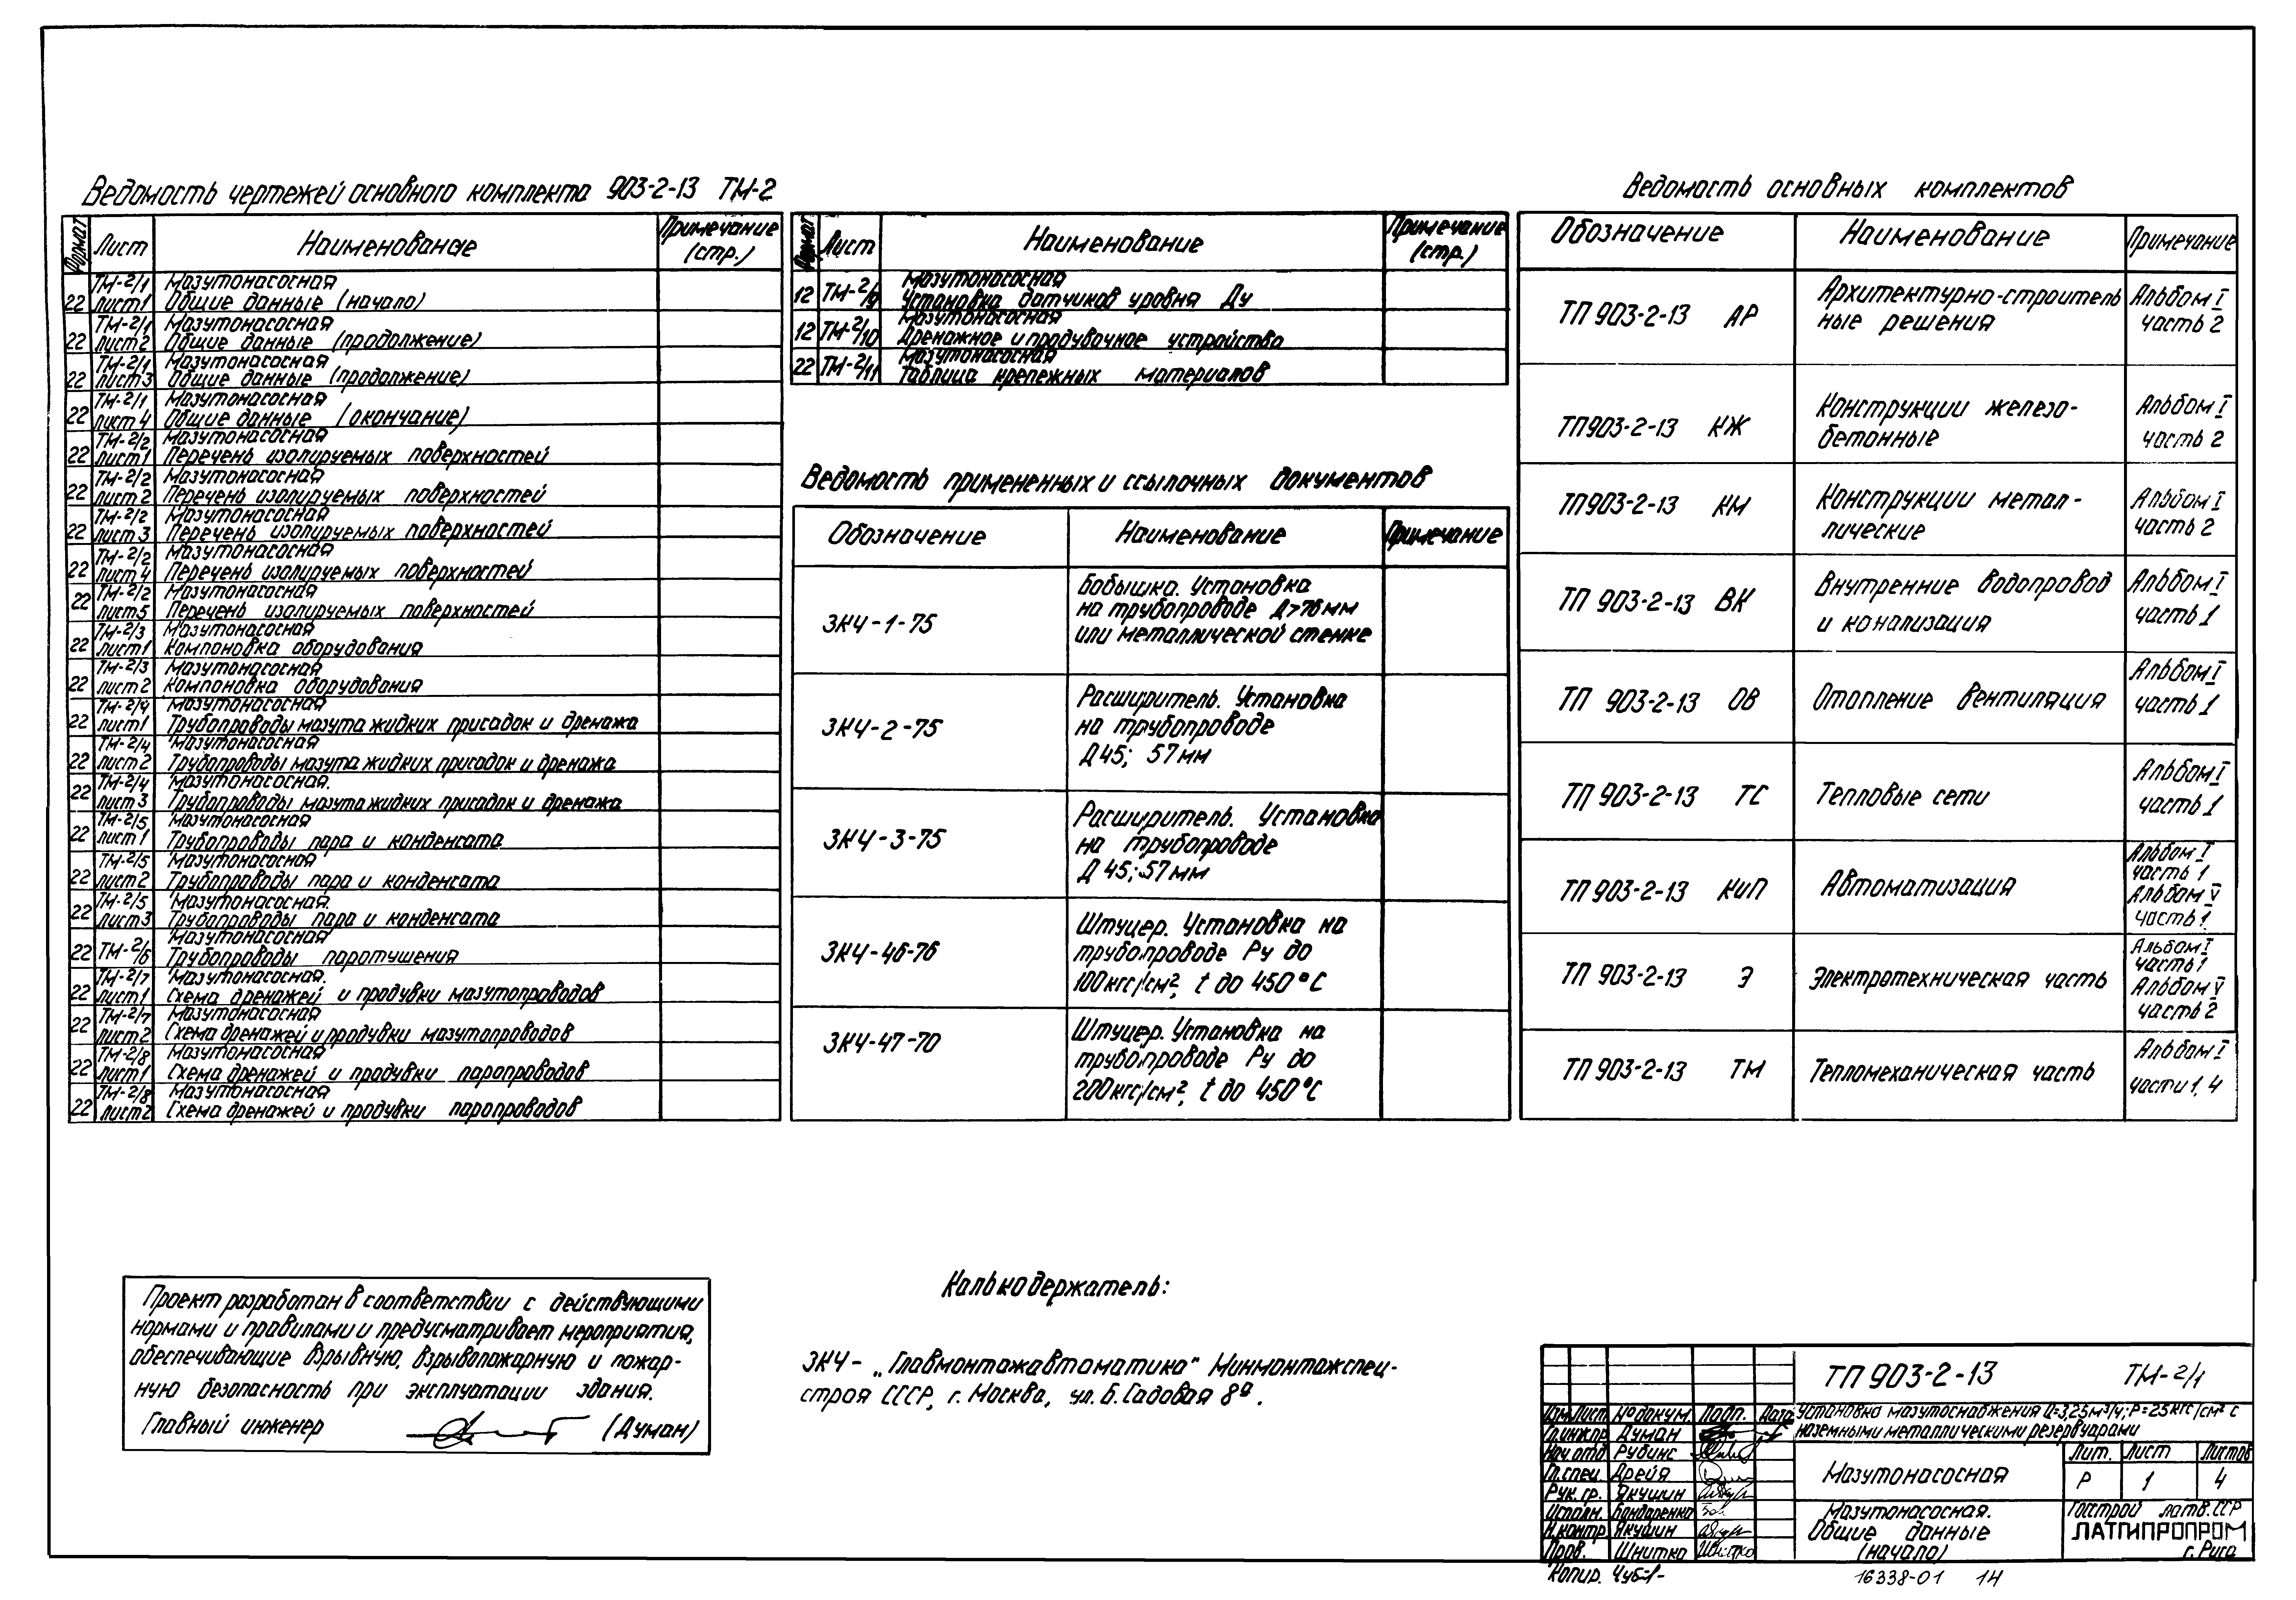 Ведомость чертежей основного комплекта 903-2-13 ТМ-2
Формат Лист Наименование Примечание (стр.)
22 ТМ-2/1 лист1 Мазутонасосная
Общие данные (начало)
22 ТМ-2/1 лист2 Мазутонасосная
Общие данные (продолжение)
22 ТМ-2/1 лист3 Мазутонасосная
Общие данные (продолжение)
22 ТМ-2/1 лист4 Мазутонасосная
Общие данные (окончание)
22 ТМ-2/2 лист1 Мазутонасосная
Перечень изолируемых поверхностей
22 ТМ-2/2 лист2 Мазутонасосная
Перечень изолируемых поверхностей
22 ТМ-2/2 лист3 Мазутонасосная
Перечень изолируемых поверхностей
22 ТМ-2/2 лист4 Мазутонасосная
Перечень изолируемых поверхностей
22 ТМ-2/2 лист5 Мазутонасосная
Перечень изолируемых поверхностей
22 ТМ-2/3 лист1 Мазутонасосная
Компоновка оборудования
22 ТМ-2/3 лист2 Мазутонасосная
Компоновка оборудования
22 ТМ-2/4 лист1 Мазутонасосная
Трубопроводы мазута жидких присадок и дренажа
22 ТМ-2/4 лист2 Мазутонасосная
Трубопроводы мазута жидких присадок и дренажа
22 ТМ-2/4 лист3 Мазутонасосная.
Трубопроводы мазута жидких присадок и дренажа
22 ТМ-2/5 лист1 Мазутонасосная
Трубопроводы пара и конденсата
22 ТМ-2/5 лист2 Мазутонасосная
Трубопроводы пара и конденсата
22 ТМ-2/5 лист3 Мазутонасосная.
Трубопроводы пара и конденсата
22 ТМ-2/6 Мазутонасосная
Трубопроводы паротушения
22 ТМ-2/7 лист1 Мазутонасосная.
Схема дренажей и продувки мазутопроводов
22 ТМ-2/7 лист2 Мазутонасосная
Схема дренажей и продувки мазутопроводов
22 ТМ-2/8 лист1 Мазутонасосная
Схема дренажей и продувки паропроводов
22 ТМ-2/8 лист2 Мазутонасосная
Схема дренажей и продувки паропроводов
Формат Лист Наименование Примечание (стр.)
12 ТМ-2/9 Мазутонасосная
Установка датчиков уровня Ду
12 ТМ-2/10 Мазутонасосная
Дренажное и продувочное устройство
22 ТМ-2/11 Мазутонасосная
Таблица крепежных материалов
Ведомость примененных и ссылочных документов
Обозначение Наименование Примечание
ЗКЧ-1-75 Бобышка. Установка
на трубопроводе Д>76мм
или металлической стенке
ЗКЧ-2-75 Расширитель. Установка
на трубопроводе
Д45; 57мм
ЗКЧ-3-75 Расширитель. Установка
на трубопроводе
Д 45; 57мм
ЗКЧ-46-76 Штуцер. Установка на
трубопроводе Ру до
100кгс/см², t до 450°С
ЗКЧ-47-70 Штуцер. Установка на
трубопроводе Ру до
200кгс/см², t до 450°С
Ведомость основных комплектов
Обозначение Наименование Примечание
ТП 903-2-13 АР Архитектурно-строитель
ные решения Альбом I
часть 2
ТП903-2-13 КЖ Конструкции железо-
бетонные Альбом I
часть 2
ТП903-2-13 КМ Конструкции метал-
лические Альбом I
часть 2
ТП 903-2-13 ВК Внутренние водопровод
и канализация Альбом I
часть 1
ТП 903-2-13 ОВ Отопление вентиляция Альбом I
часть 1
ТП 903-2-13 ТС Тепловые сети Альбом I
часть 1
ТП 903-2-13 КиП Автоматизация Альбом I
часть 1
Альбом V
часть 1
ТП 903-2-13 Э Электротехническая часть Альбом I
часть 1
Альбом V
часть 2
ТП 903-2-13 ТМ Тепломеханическая часть Альбом I
части 1, 4
Проект разработан в соответствии с действующими
нормами и правилами и предусматривает мероприятия,
обеспечивающие взрывную, взрывопожарную и пожар-
ную безопасность при эксплуатации здания.
Главный инженер (Думан)
Калькодержатель:
ЗКЧ - „Главмонтажавтоматика" Минмонтажспец-
строя СССР, г. Москва, ул. Б. Садовая 8а.
ТП 903-2-13 ТМ-2/1
Изм. Лист № докум. Подп. Дата
Установка мазутоснабжения Q=3,25м³/ч; Р=25кгс/см² с
наземными металлическими резервуарами
Гл.инж.пр Думан
Нач.отд Рубинс
Гл.спец. Дрейя
Рук. гр. Якушин
Исполн. Бондаренко
Н.контр Якушин
Пров. Шнитко
Мазутонасосная
Лит. Лист Листов
Р 1 4
Мазутонасосная.
Общие данные
(начало)
Госстрой латв.ССР
ЛАТГИПРОПРОМ
г. Рига
Копир.
16338-01 14